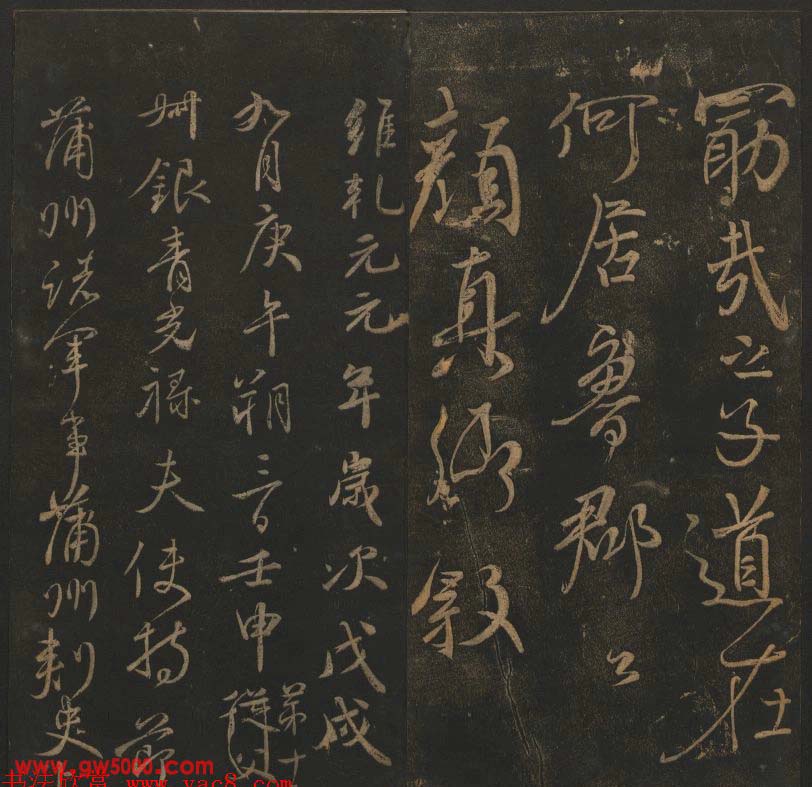 勖哉之子道在
何居魯郡公
顏真卿敘
維乾元元年歲次戊戌
九月庚午朔三日壬申第十從父
銀青光祿夫使持節
蒲州諸軍事蒲州刺史
www.gw5000.com
书法欣赏 www.yac8.com